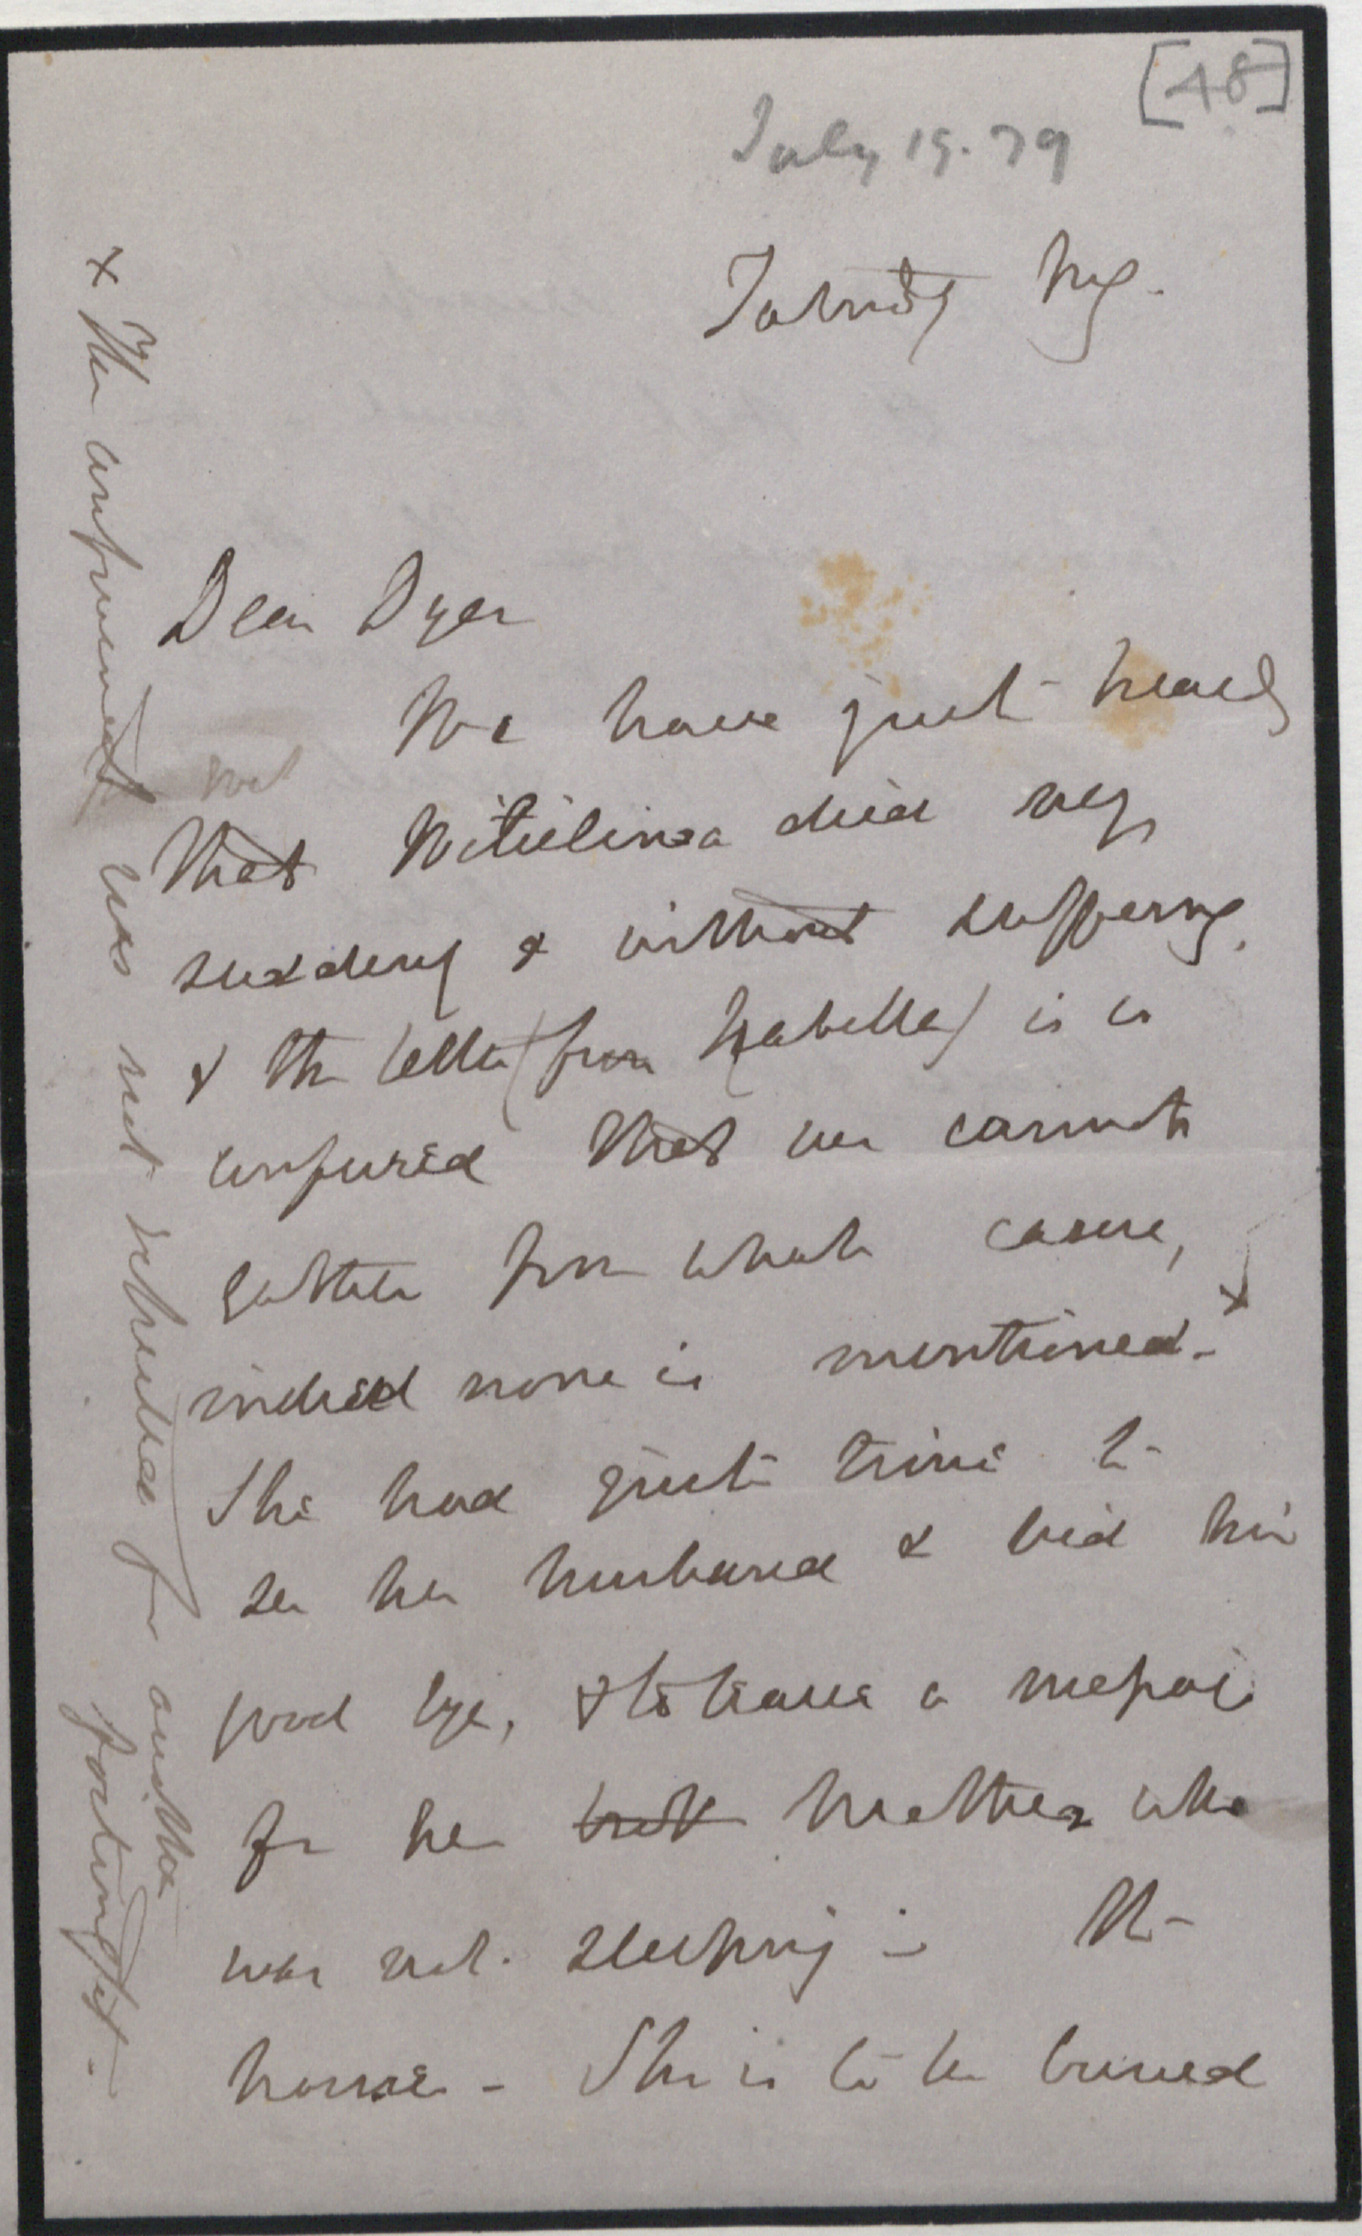 [48]
July 19. 79
Saturday Mg.
Dear Dyer
We have just heard
that Wilielma died very
suddenly & without suffering.
& the letter (from Isabella) is so
confused that we cannot
gather from what cause,
indeed none is mentioned - x
She had just time to
see her husband & bid him
good bye, & to leave a message
for her mother who
was not sleeping in the
house - She is to be buried
x The confinement was not expected for another
fortnight -